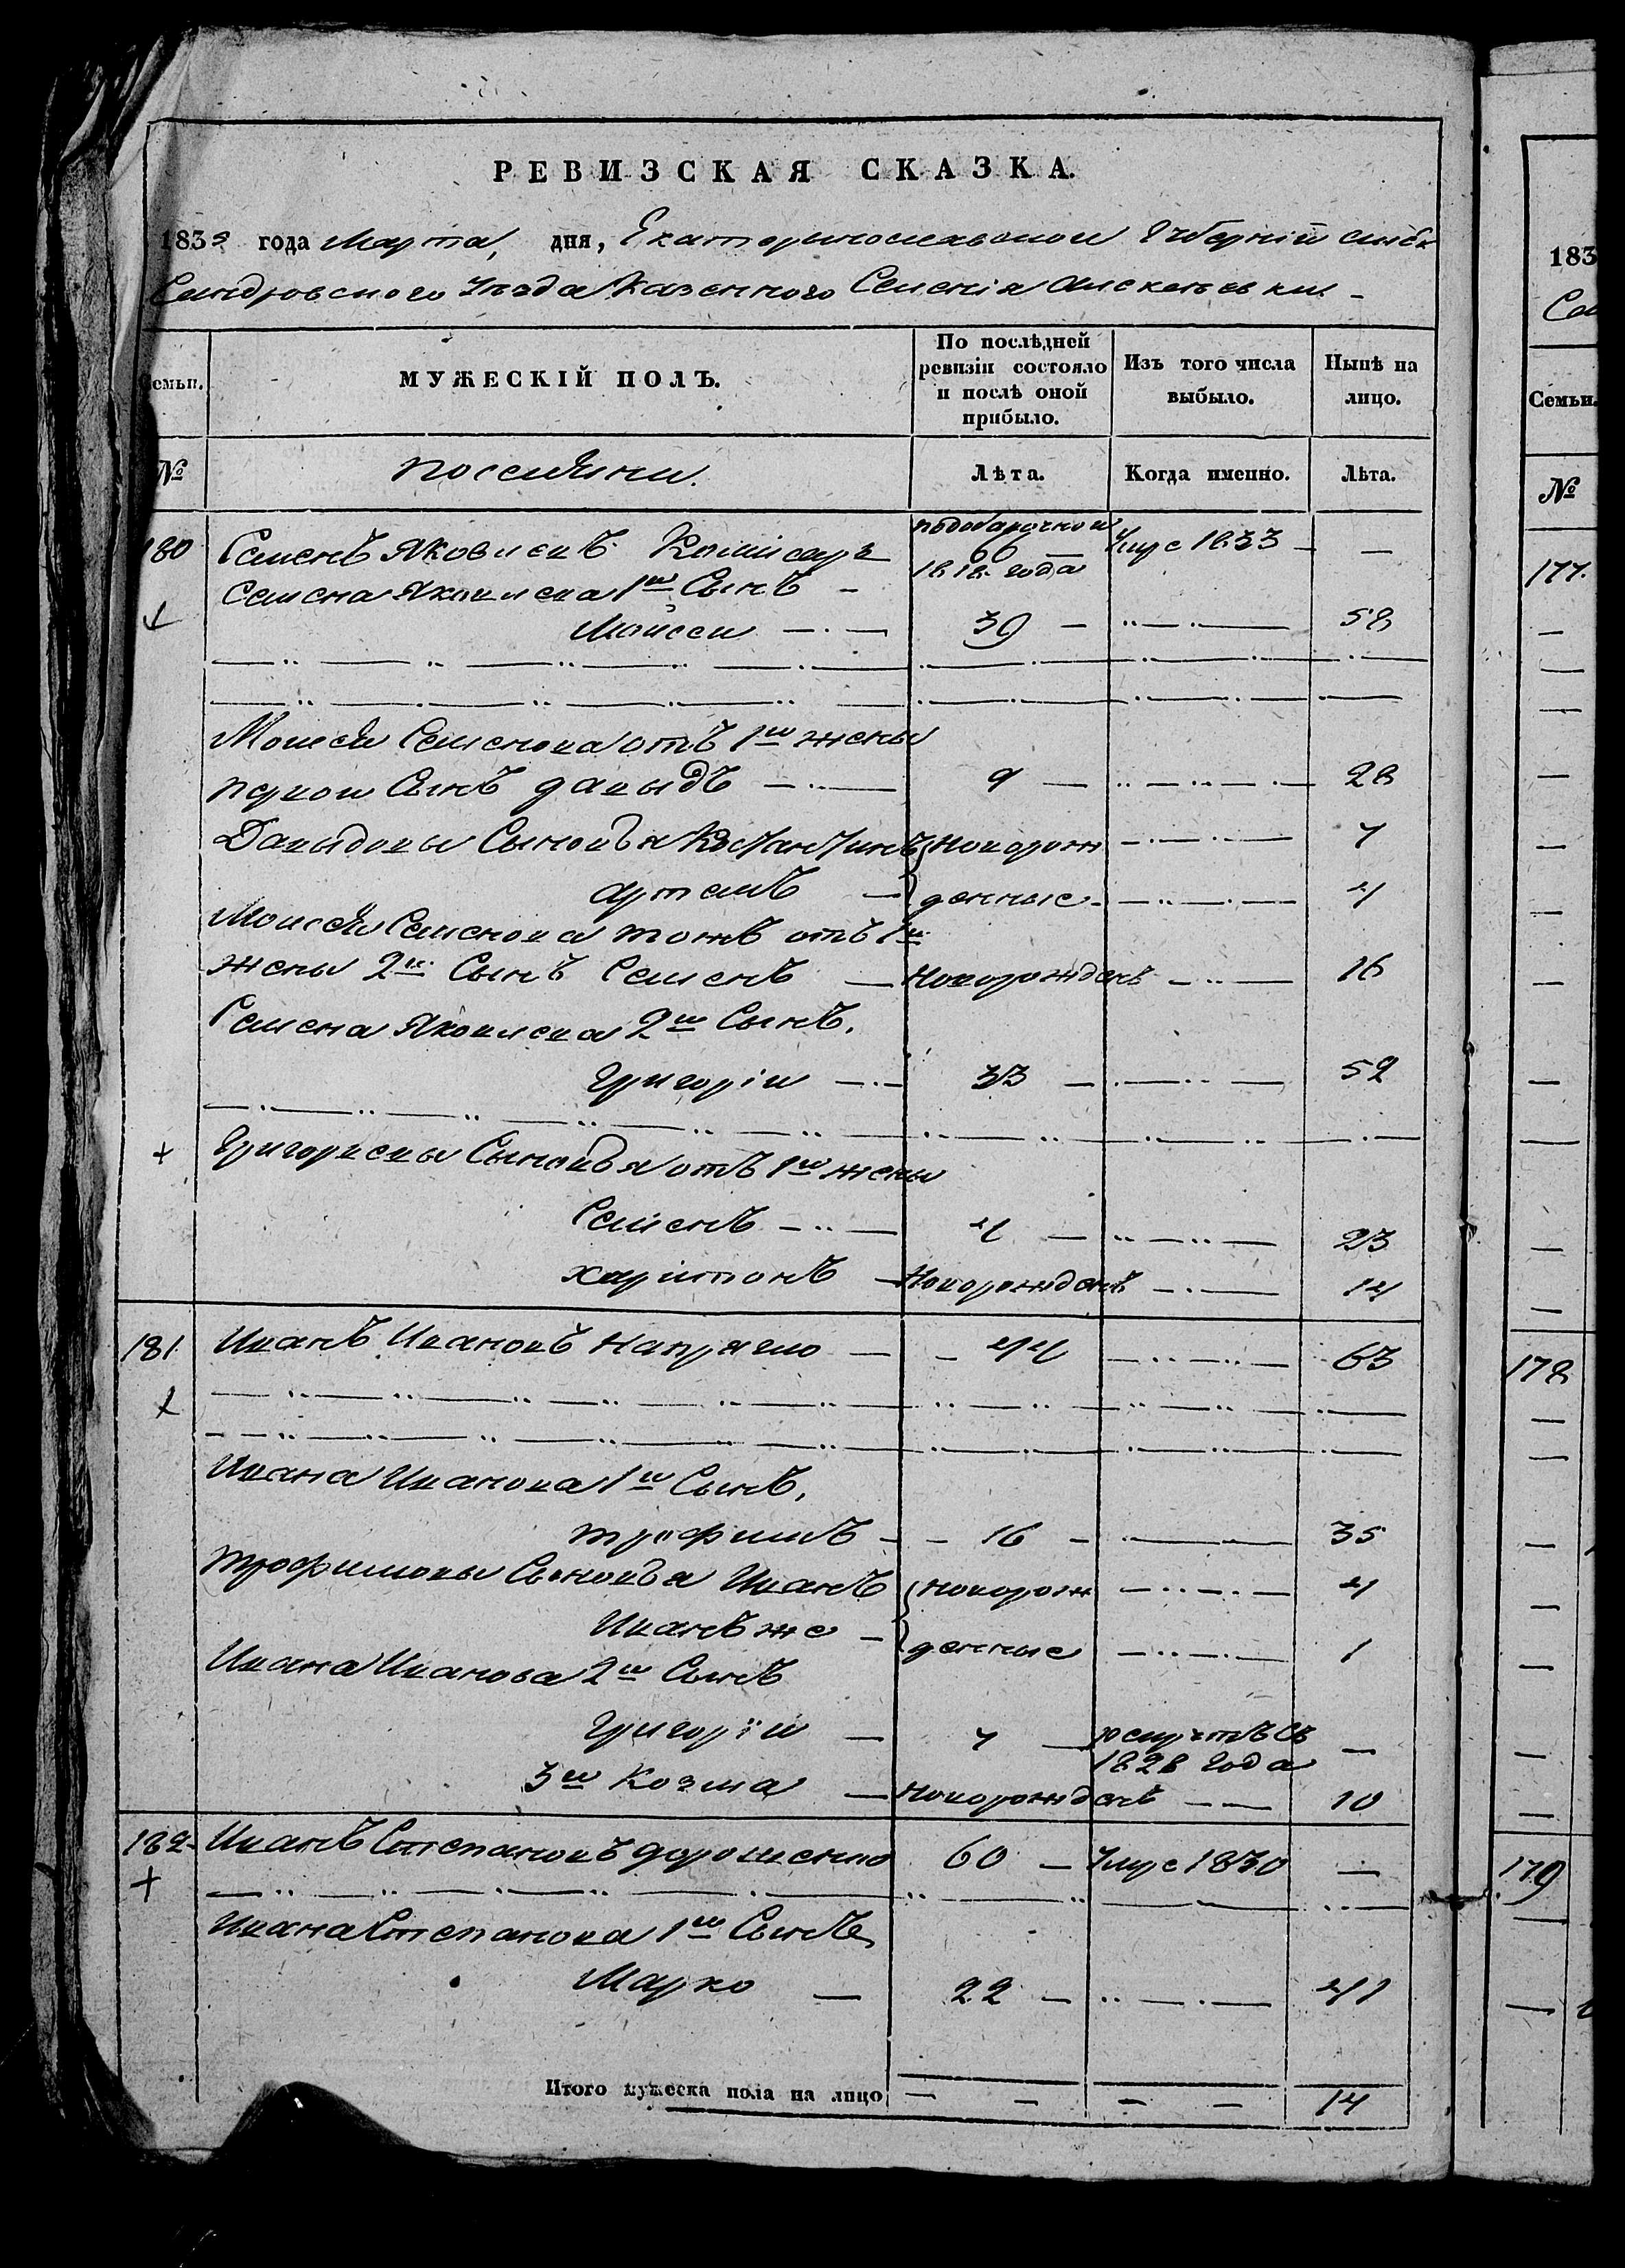 РЕВИЗСКАЯ СКАЗКА.
1835 года Марта, дня, Екатеринославской Губернiи Алек
сандровского Уезда Казенного Селенiя
Семьи. МУЖЕСКIЙ ПОЛЪ. По послѣдней ревизiи состояло и послѣ оной прибыло. Изъ того числа выбыло. Нынѣ на лицо.
№ Лѣта. Когда именно. Лѣта.
180 Семенъ Яковлевъ Комисаръ 66 — Умре 1833 — —
1818 года
Семена Яковлева 1й Сынъ —
Моисеи — 39 — 58
Моисея Семенова отъ 1й жены
первои Сынъ давыдъ — 9 — 28
Давыдовы Сыновья Костантинъ новорож 7
артемъ — денные 4
Моисея Семенова тожъ отъ 1й
жены 2й Сынъ Семенъ — Новорожденъ 16
Семена Яковлева 2й Сынъ,
Григорiи — 33 — 52
Григориевы Сыновья отъ 1й жены
Семенъ — 4 — 23
харитонъ — Новорожденъ — 14
181 Иванъ Ивановъ Напрягло — 44 63
Ивана Иванова 1й Сынъ,
трофимъ — 16 — 35
трофимовы Сыновья Иванъ новорож 4
Иванъ же — денные 1
Ивана Иванова 2й Сынъ
Григорiи — 7 — рекрутъ въ —
1828 года
3й Козма — Новорожденъ — 10
182 Иванъ Степановъ дорошенко 60 — Умре 1830 —
Ивана Степанова 1й Сынъ,
Марко — 22 — 41
Итого мужеска пола на лицо — — — — 14
183
Семьи.
№
177.
178
179